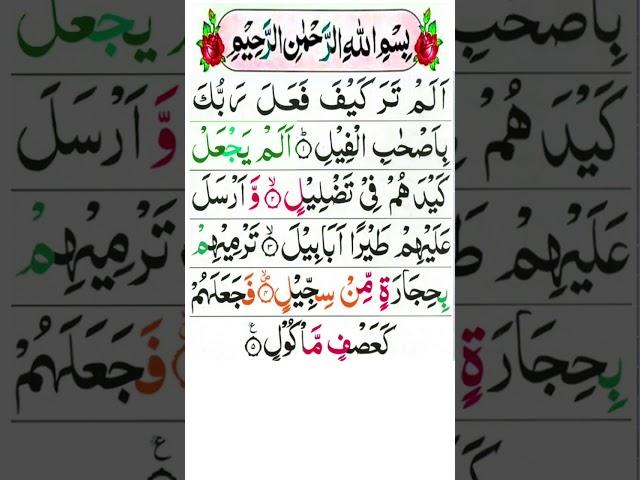 بِسْمِ اللهِ الرَّحْمٰنِ الرَّحِيْمِ
اَلَمْ تَرَ كَيْفَ فَعَلَ رَبُّكَ
بِاَصْحٰبِ الْفِيْلِ ۝۱ اَلَمْ يَجْعَلْ
كَيْدَهُمْ فِيْ تَضْلِيْلٍ ۝۲ وَّ اَرْسَلَ
عَلَيْهِمْ طَيْرًا اَبَابِيْلَ ۝۳ تَرْمِيْهِمْ
بِحِجَارَةٍ مِّنْ سِجِّيْلٍ ۝۴ فَجَعَلَهُمْ
كَعَصْفٍ مَّاْكُوْلٍ ۝۵